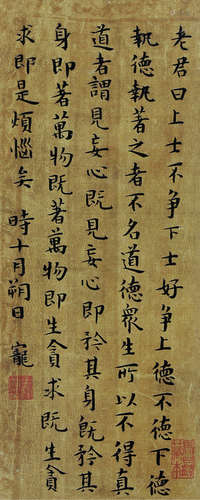 老君曰上士不争下士好争上德不德下德
執德執著之者不名道德衆生所以不得真
道者謂見妄心既見妄心即矜其身既矜其
身即著萬物既著萬物即生貪求既生貪
求即是煩惱矣 時十月朔日 寵